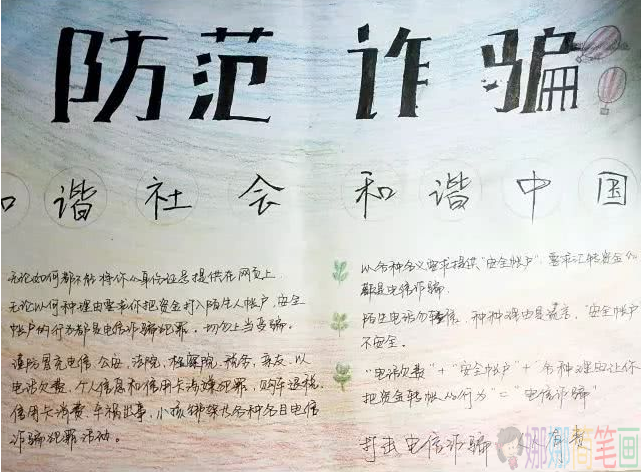 防范诈骗
和谐社会 和谐中国
无论如何都不能将你的身份证号提供在网页上
无论以何种理由要求你把资金打入陌生人帐户,安全
帐户的行为都是电信诈骗犯罪。切勿上当受骗。
谨防冒充电信、公安、法院、检察院、税务、亲友、以
电话欠费、个人信息和信用卡涉嫌犯罪,购车退税、
信用卡消费、车祸出事、小孩绑架等各种名目电信
诈骗犯罪活动。
以各种名义要求提供“安全帐户”要求汇转资金
都是电信诈骗
陌生电话勿轻信,种种理由是谎言,“安全帐户”
不安全。
“电话欠费”+“安全帐户”+“各种理由让你
把资金转帐的行为”=“电信诈骗”
打击电信诈骗 有责
娜娜简笔画